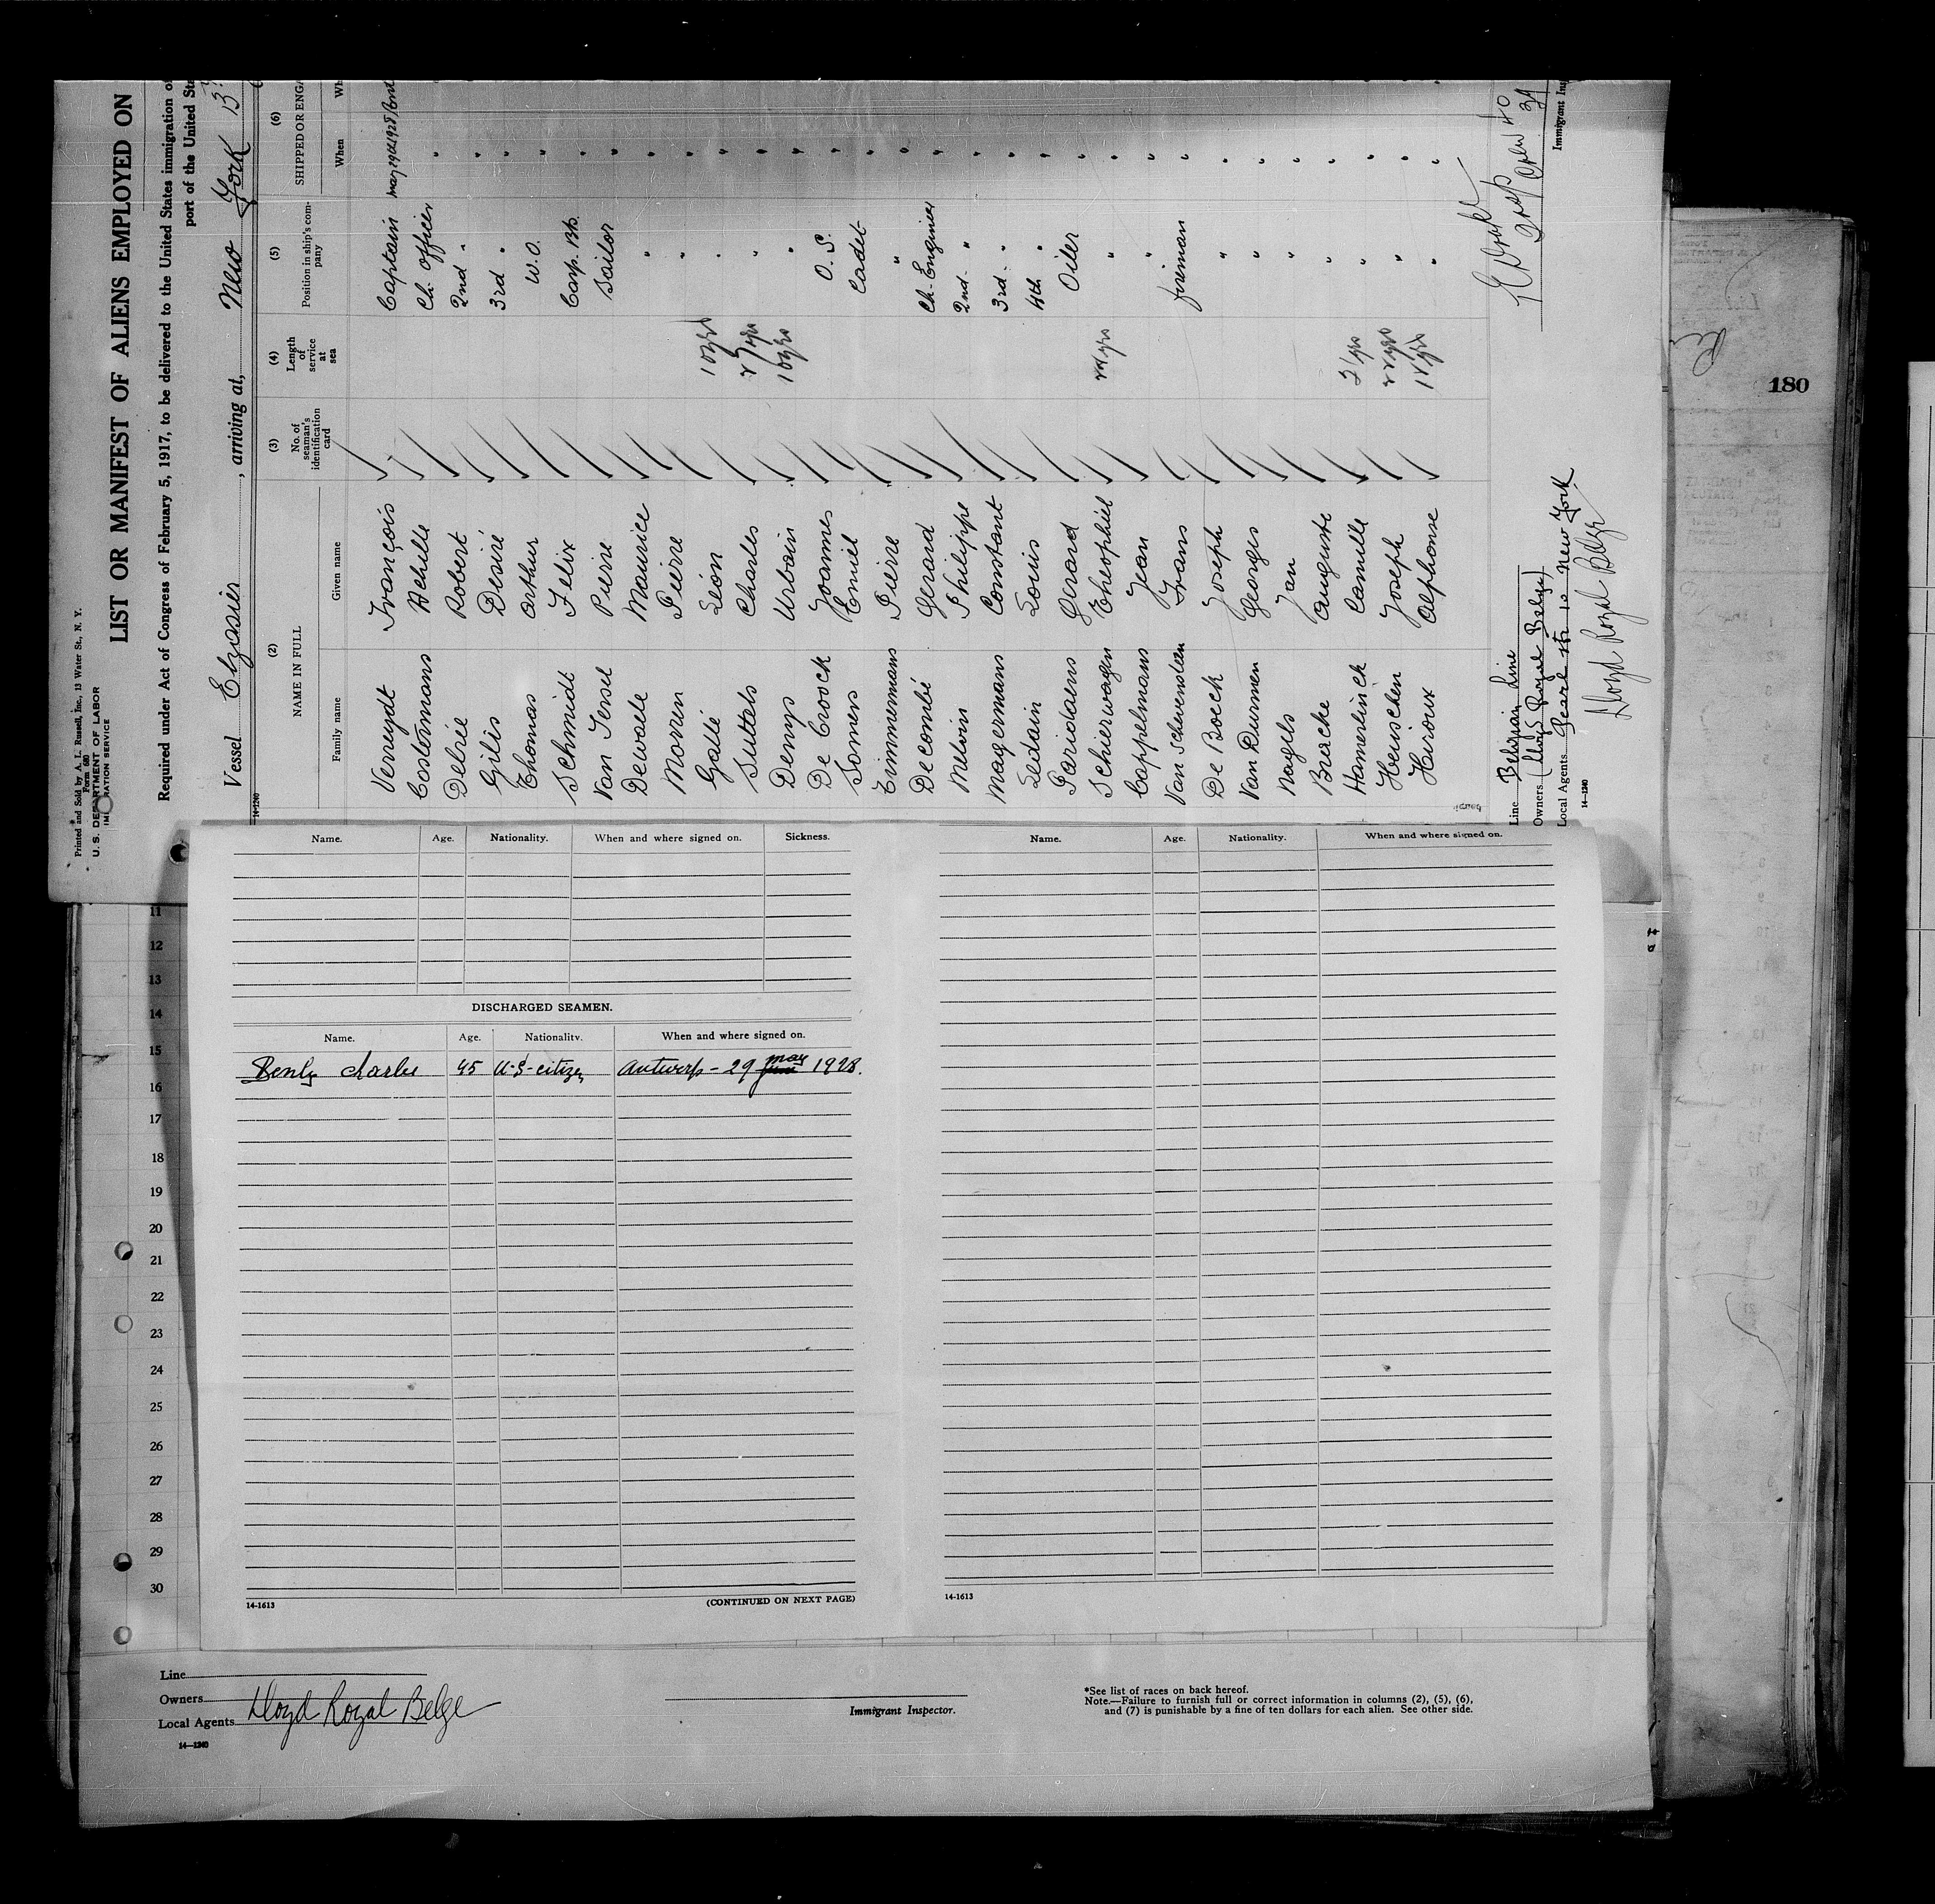 Printed and Sold by A. L. Russell, Inc., 13 Water St., N. Y.
Form 680
U. S. DEPARTMENT OF LABOR
IMMIGRATION SERVICE
LIST OR MANIFEST OF ALIENS EMPLOYED ON
Required under Act of Congress of February 5, 1917, to be delivered to the United States immigration of
port of the United St
Vessel Elzasier, arriving at, New York 13
14-1240
(2) (3) (4) (5) (6)
NAME IN FULL No. of seaman's identification card Length of service at sea Position in ship's company SHIPPED OR ENGA
Family name Given name When
Verreydt François Captain may 29th 1928
Costermans Achille Ch. Officer "
Delrée Robert 2nd " "
Gilis Desiré 3rd " "
Thomas Arthur W.O. "
Schmidt Felix Carp. "
Van Tessel Pierre Sailor "
Dewaele Maurice " "
Morren Pierre " "
Galle Léon 10 yrs " "
Suttels Charles " "
Denys Urbain 10 yrs " "
De Croock Joannes O.S. "
Somers Emiel Cadet "
Timmermans Pierre " "
Decombé Gerard Ch. Engineer "
Melvin Philippe 2nd " "
Magermans Constant 3rd " "
Ledain Louis 4th " "
Paridaens Gerard Oiler "
Schierwagen Theophiel " "
Cappelmans Jean " "
Frans foreman "
De Boeck Joseph " "
Van Durmen Georges " "
Nagels Jan " "
Auguste " "
Hamerlinck Camille " "
Heuschen Joseph " "
Heiroux Alphonse " "
Line Belgian Line
Owners (Lloyd Royal Belge)
Local Agents Pearl str 10 New York
Lloyd Royal Belge
Immigrant In
14-1240
180
Name. Age. Nationality. When and where signed on. Sickness.
DISCHARGED SEAMEN.
Name. Age. Nationality. When and where signed on.
Charles 45 U.S. citizen Antwerp - 29 may 1928.
14-1613 (CONTINUED ON NEXT PAGE)
Name. Age. Nationality. When and where signed on.
14-1613
11
12
13
14
15
16
17
18
19
20
21
22
23
24
25
26
27
28
29
30
Line
Owners
Local Agents Lloyd Royal Belge
14-1240
Immigrant Inspector.
*See list of races on back hereof.
Note.—Failure to furnish full or correct information in columns (2), (5), (6),
and (7) is punishable by a fine of ten dollars for each alien. See other side.